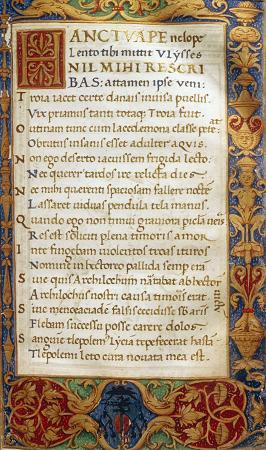 HANC TVA PEnelope
Lento tibi mittit VLysses
NIL MIHI RESCRI
BAS: attamen ipse veni:
Troia iacet certe danais inuisa puellis.
Vix priamus tanti totaque Troia fuit.
O utinam tunc cum lacedemona classe petebat
Obrutus insanis esset adulter aquis.
Non ego deserto iacuissem frigida lecto:
Nec querer tardos ire relicta dies.
Nec mihi querenti spaciosam fallere noctem
Lassaret uiduas pendula tela manus.
Quando ego non timui grauiora pericla ueris
Res est soliciti plena timoris amor
In te fingebam uiolentos troas ituros
Nomine in hectoreo pallida semper eram
Siue quis Archilochum narrabat ab hectore
Archilochus nostri causa timoris erat.
Siue menoeciadem falsis cecidisse sub armis
Flebam successu posse carere dolos.
Sanguine tlepolemus Lycia tepefecerat hastam
Tlepolemi leto cura nouata mea est.